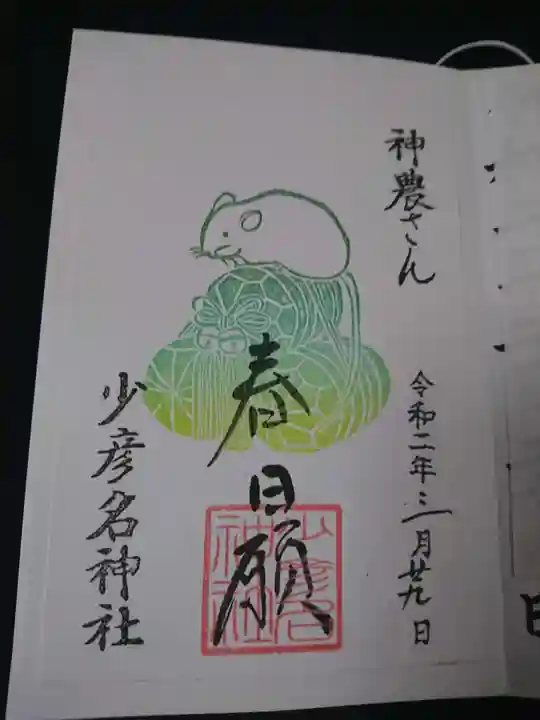 神農さん
令和二年三月廿九日
春日願
少彦名神社
少彦名
神社